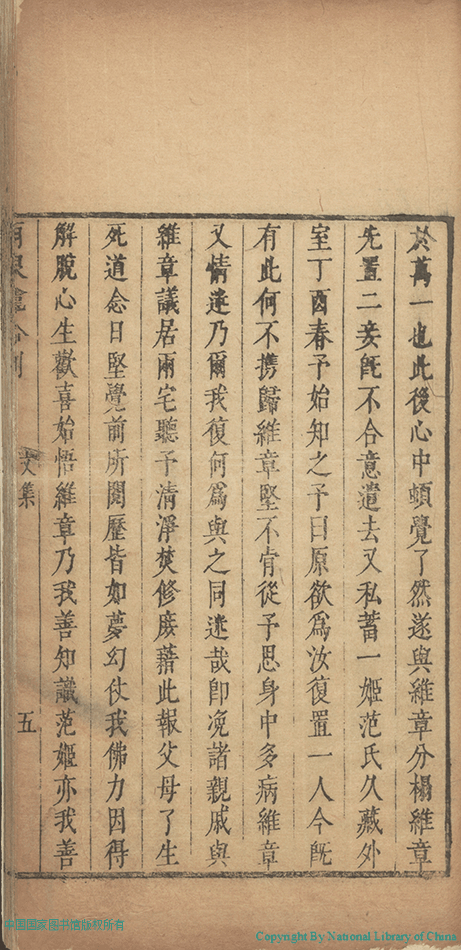 於萬一也此後心中頓覺了然遂與維章分榻維章
先置二妾旣不合意遣去又私蓄一姬范氏久藏外
室丁酉春予始知之予曰原欲爲汝復置一人今旣
有此何不攜歸維章堅不肯從予思身中多病維章
又情迷乃爾我復何爲與之同迷哉卽凂諸親戚與
維章議居兩宅聽予清淨焚修庶藉此報父母了生
死道念日堅覺前所閱歷皆如夢幻仗我佛力因得
解脫心生歡喜始悟維章乃我善知識范姬亦我善
文集
五
中国国家图书馆版权所有
Copyright By National Library of China